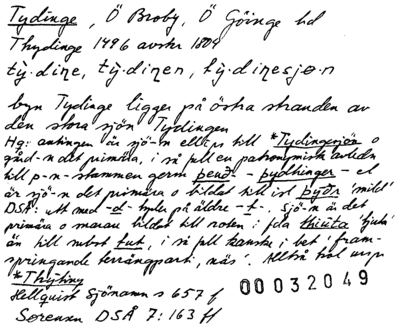 Tydinge, Ö Broby, Ö Göinge hd
Thydinge 1496 avskr 1804
tỳ·diŋe, tỳ·diŋen, tỳ·diŋesjø·n
byn Tydinge ligger på östra stranden av
den stora sjön Tydingen
Hg: antingen är sjö-n ellips till *Tydingesjön o
gård-n det primära, i så fall en patronymisk avledn
till p-n-stammen germ - el
är sjö-n det primära o bildat till isl þýðr 'mild'
DSÅ: utt med -d- tyder på äldre -t-. Sjö-n är det
primära o bildat till roten i fda thiuta 'tjuta'
än till subst tut, i så fall kanske i bet 'fram-
springande terrängparti, näs'. Alltså
*Thyting
Hellquist Sjönamn s 657 f
00032049
Sørensen DSÅ 7:163 ff